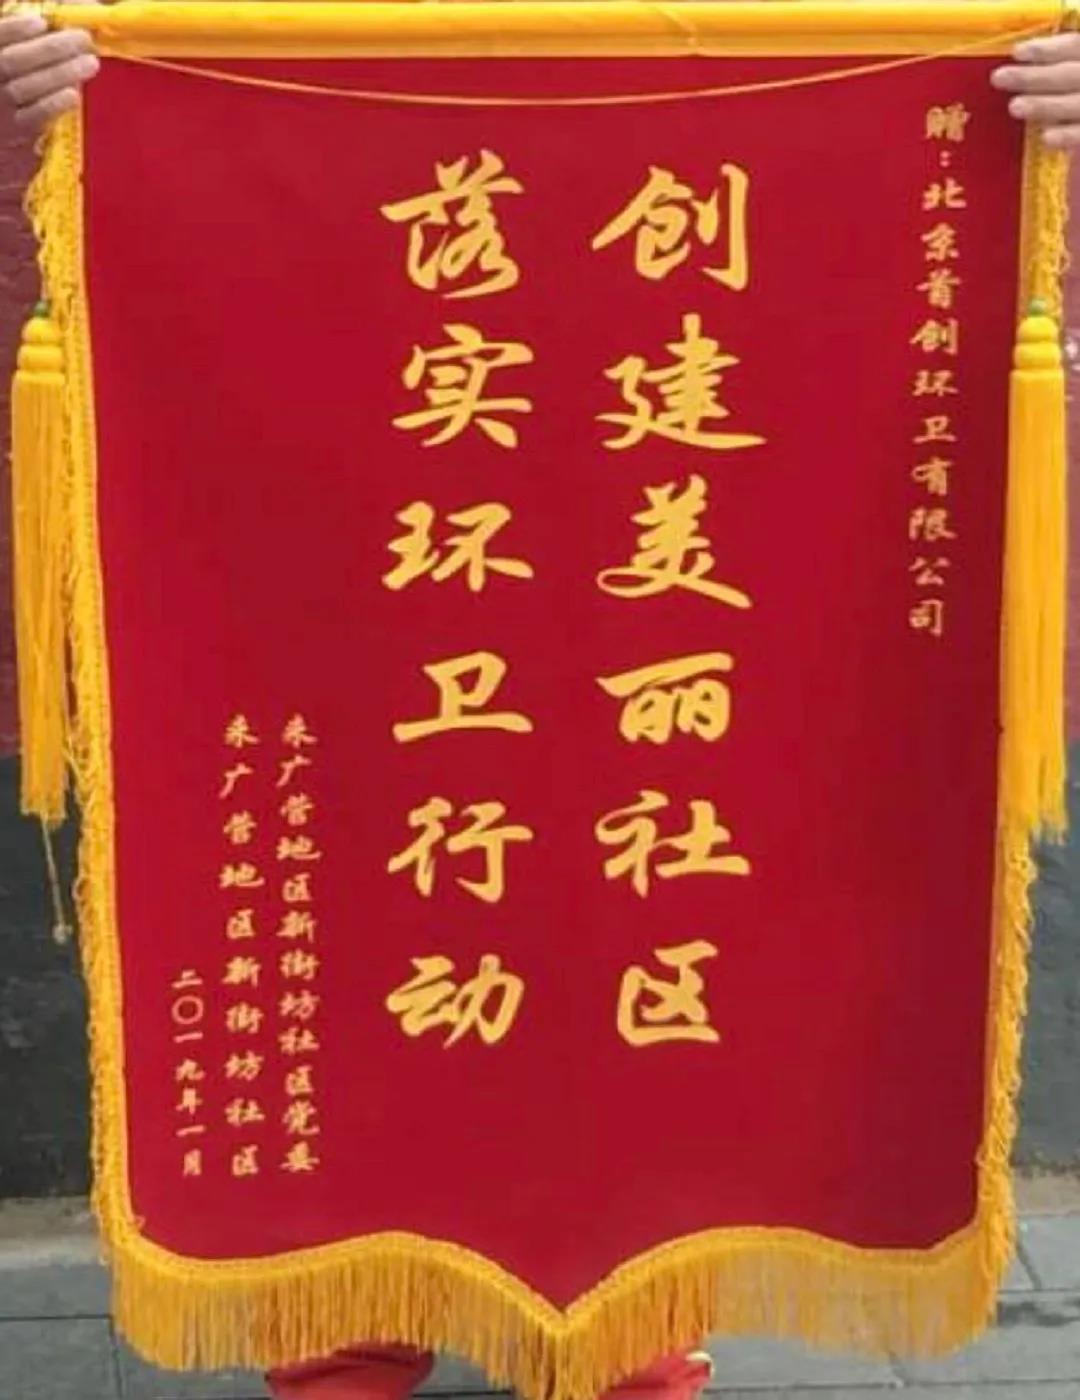 赠：北京首创环卫有限公司
创建美丽社区
落实环卫行动
来广营地区新街坊社区党委
来广营地区新街坊社区
二〇一九年一月